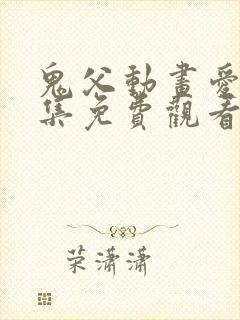 鬼父動畫愛
集免費觀看
荣潇潇